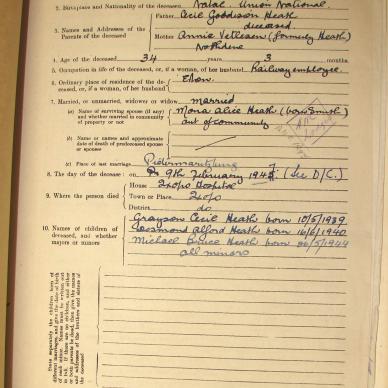 2. Birthplace and Nationality of the deceased Natal. Union National
3. Names and Addresses of the Parents of the deceased
Father Cecil Goodison Heath
deceased
Mother Annie Vellesen (formerly Heath)
Northdene
4. Age of the deceased 34 years 3 months
5. Occupation in life of the deceased, or, if a woman, of her husband Railway employee.
6. Ordinary place of residence of the deceased, or, if a woman, of her husband
7. Married or unmarried, widower or widow married
(a) Name of surviving spouse (if any) and whether married in community of property or not Mona Alice Heath (born Smith)
out of community
(b) Name or names and approximate date of death of predeceased spouse or spouses
(c) Place of last marriage Pietermaritzburg
8. The day of the deceased: on 9th February 194 (See D/C.)
9. Where the person died
House Hospital
Town or Place
District do
10. Names of children of deceased, and whether majors or minors
Grayson Cecil Heath born 10/5/1939.
Desmond Alford Heath born 16/6/1940
Michael Bruce Heath born /5/1944
all minors
State separately the children born of different marriages, and give the date of birth of each minor. Write
is out. If there are no children, and either
or both parents be dead, then give the names
and addresses of the brothers and sisters of
the deceased